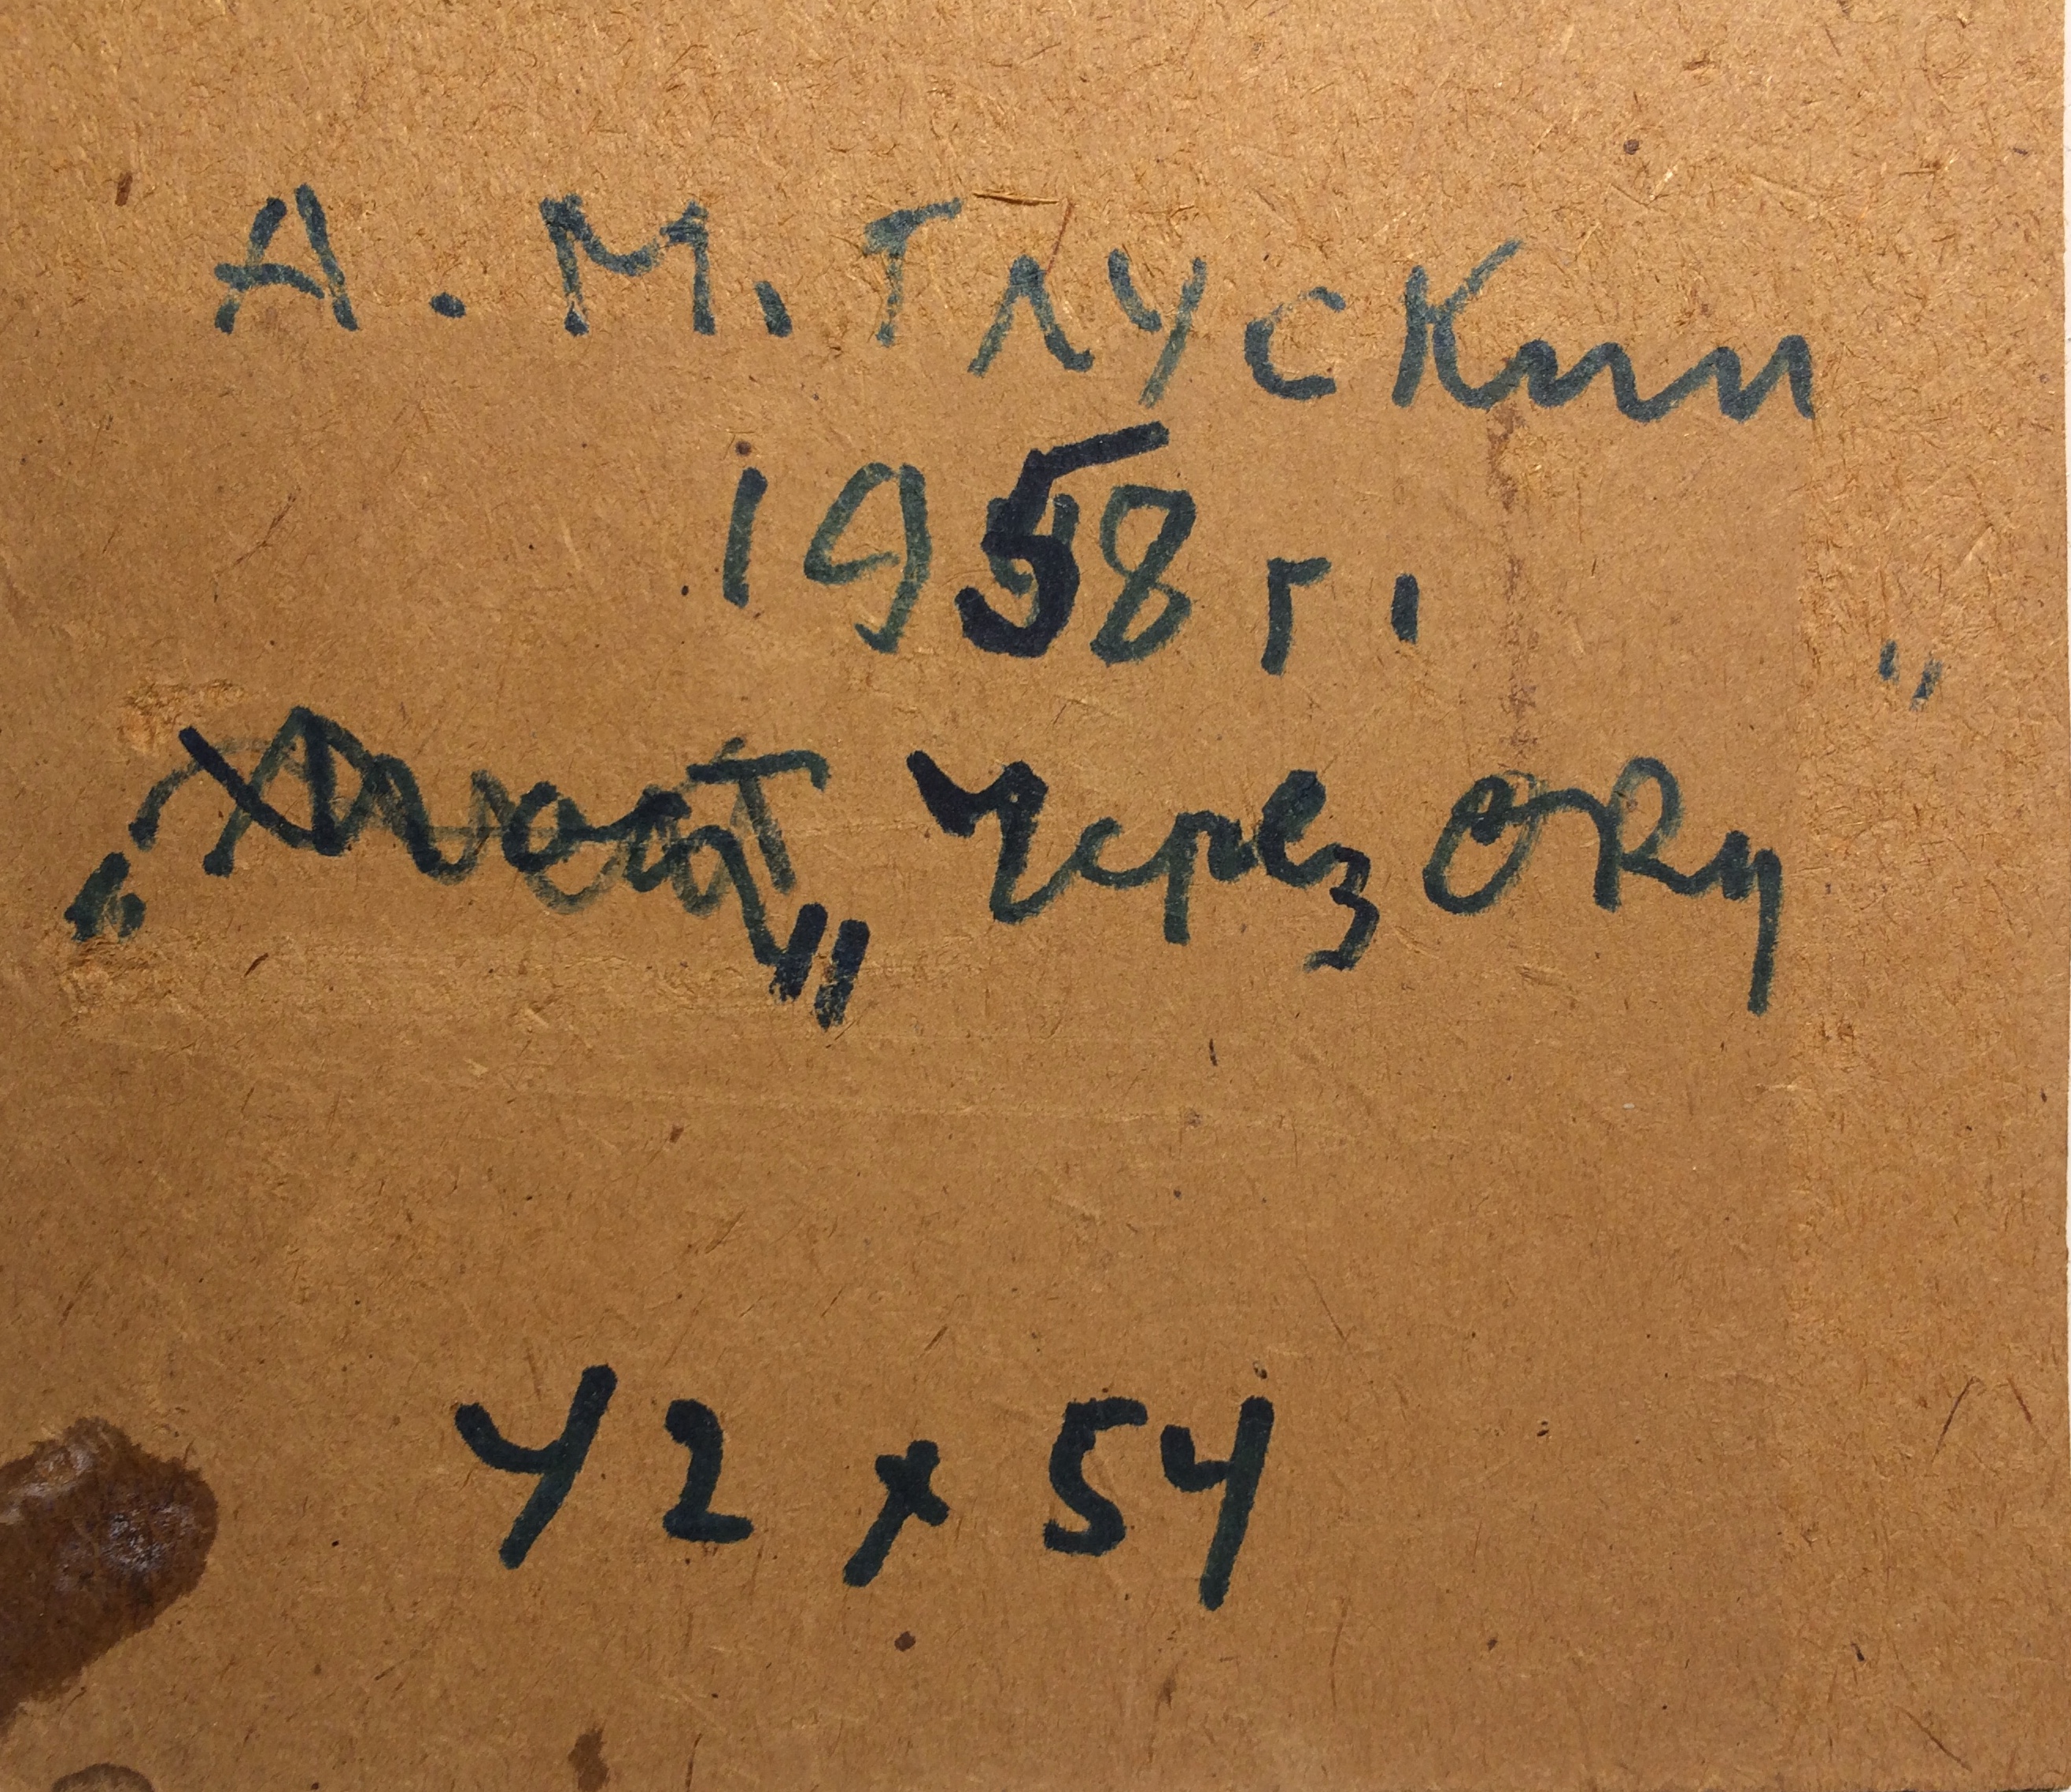 А.М. Глускин
1958 г.
„Мост„ через Оку"
42 x 54